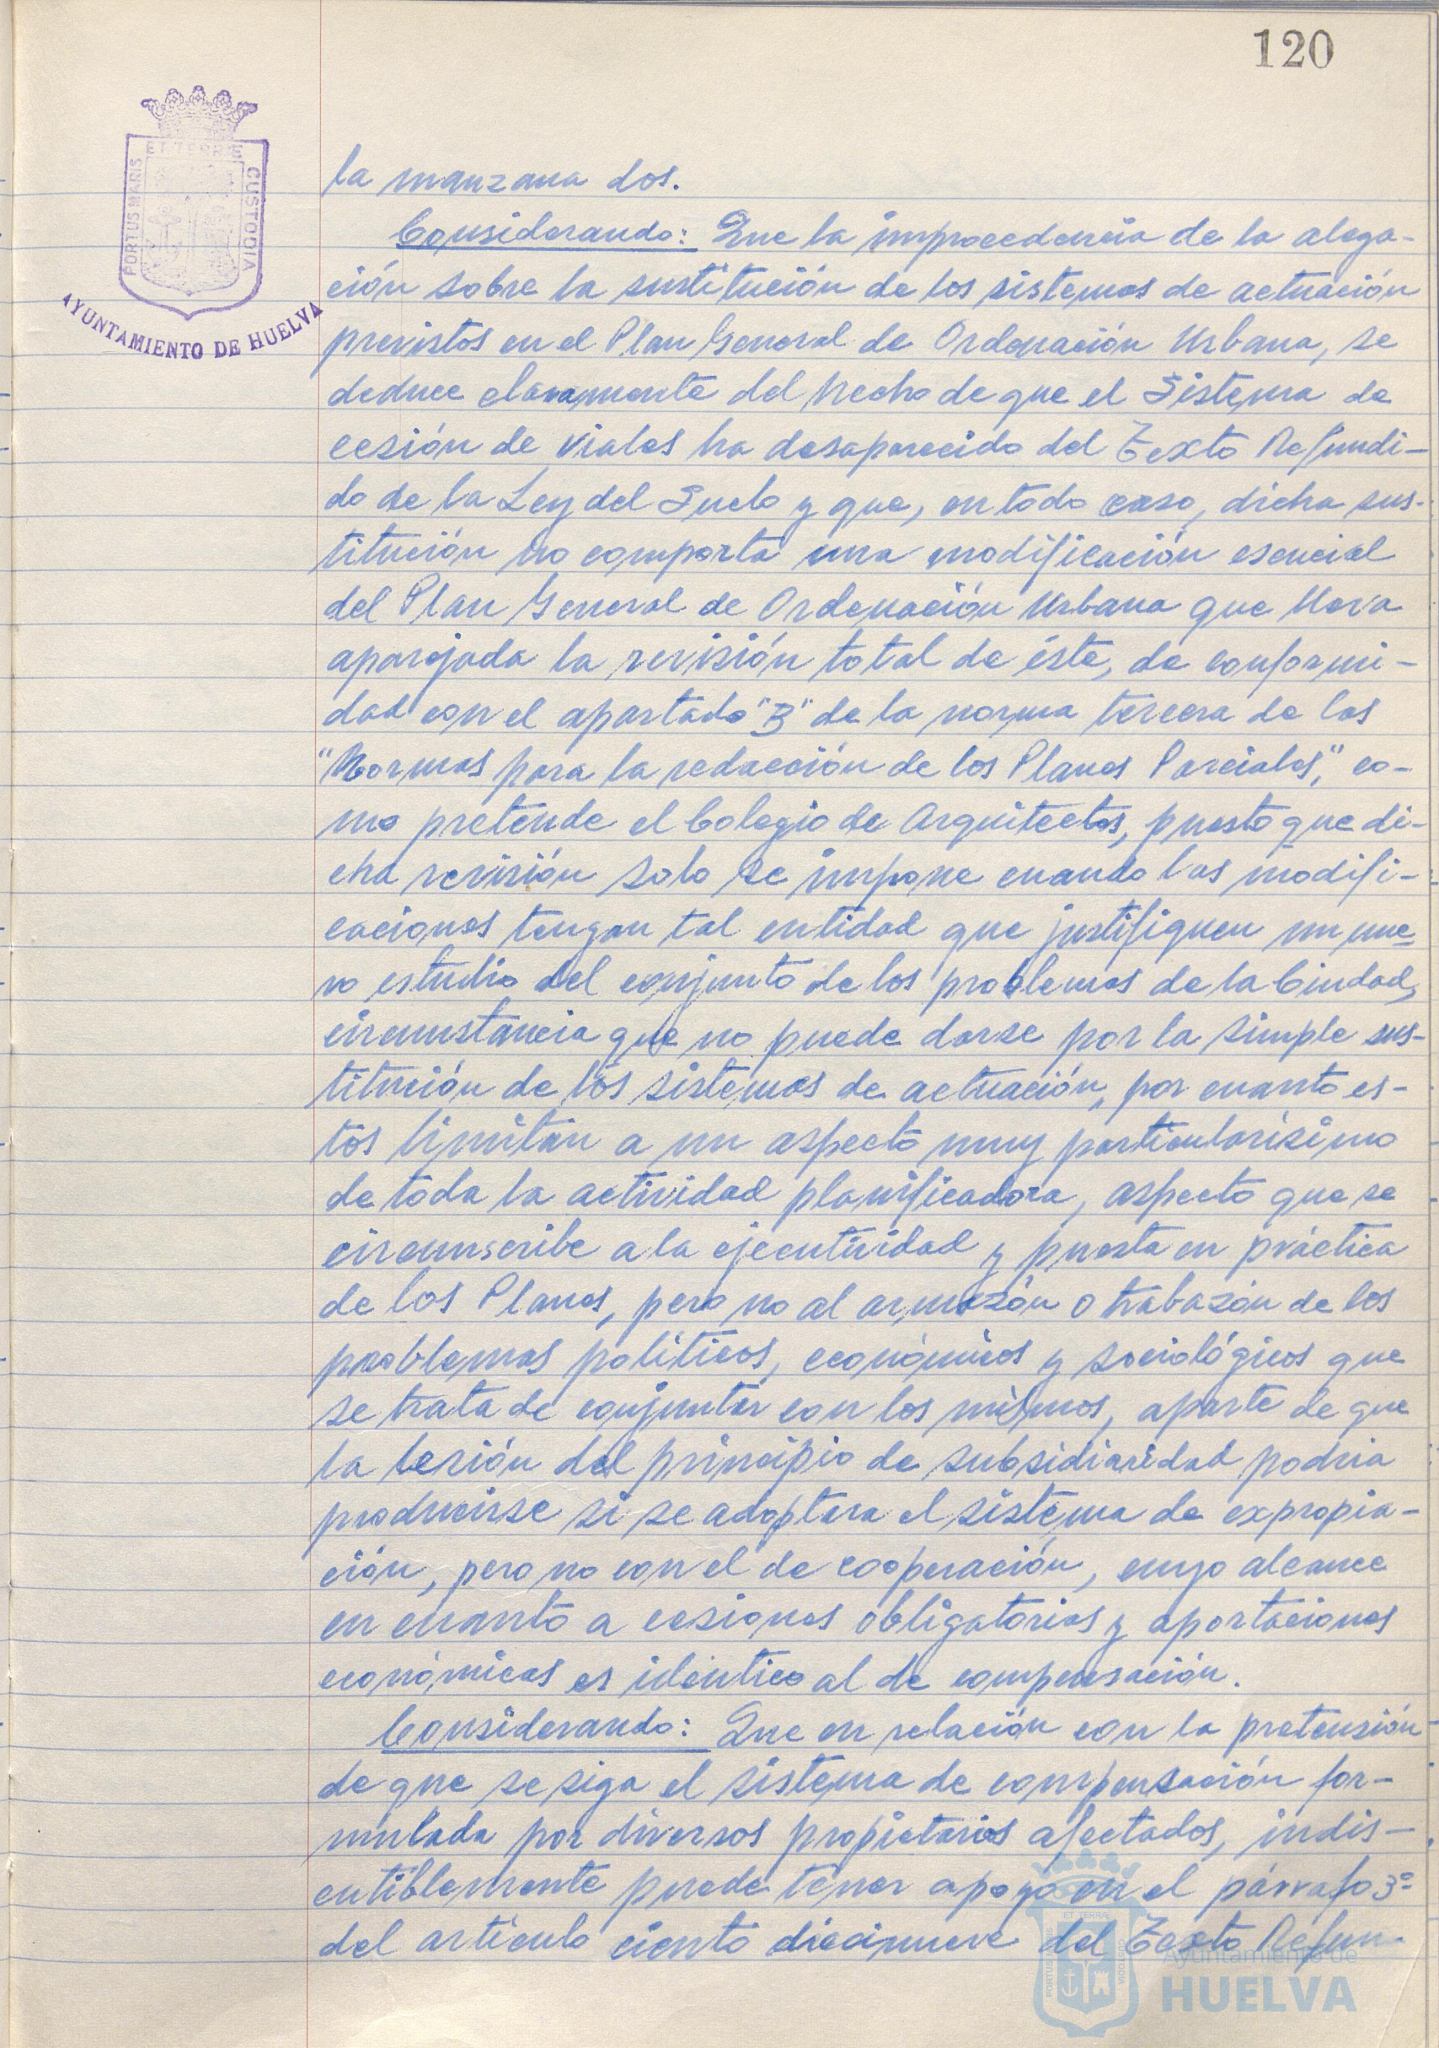 120
ET TERRE
PORTUS MARIS
CUSTODIA
AYUNTAMIENTO DE HUELVA
la manzana dos.
Considerando: Que la improcedencia de la alega-
ción sobre la sustitución de los sistemas de actuación
previstos en el Plan General de Ordenación Urbana, se
deduce claramente del hecho de que el Sistema de
cesión de viales ha desaparecido del Texto Refundi-
do de la Ley del Suelo y que, en todo caso, dicha sus-
titución no comporta una modificación esencial
del Plan General de Ordenación Urbana que lleva
aparejada la revisión total de éste, de conformi-
dad con el apartado "B" de la norma tercera de las
"Normas para la redacción de los Planes Parciales," co-
mo pretende el Colegio de Arquitectos, puesto que di-
cha revisión solo se impone cuando las modifi-
caciones tengan tal entidad que justifiquen un nue-
vo estudio del conjunto de los problemas de la Ciudad,
circunstancia que no puede darse por la simple sus-
titución de los sistemas de actuación, por cuanto es-
tos limitan a un aspecto muy particularísimo
de toda la actividad planificadora, aspecto que se
circunscribe a la ejecutividad y puesta en práctica
de los Planes, pero no al armazón o trabazón de los
problemas políticos, económicos y sociológicos que
se trata de conjuntar con los mismos, aparte de que
la lesión del principio de subsidiaridad podria
producirse si se adoptara el sistema de expropia-
ción, pero no con el de cooperación, cuyo alcance
en cuanto a cesiones obligatorias y aportaciones
económicas es idéntico al de compensación.
Considerando: Que en relación con la pretensión
de que se siga el sistema de compensación for-
mulada por diversos propietarios afectados, indis-
cutiblemente puede tener apoyo en el párrafo 3º
del artículo ciento diecinueve del Texto Refun-
Ayuntamiento de
HUELVA